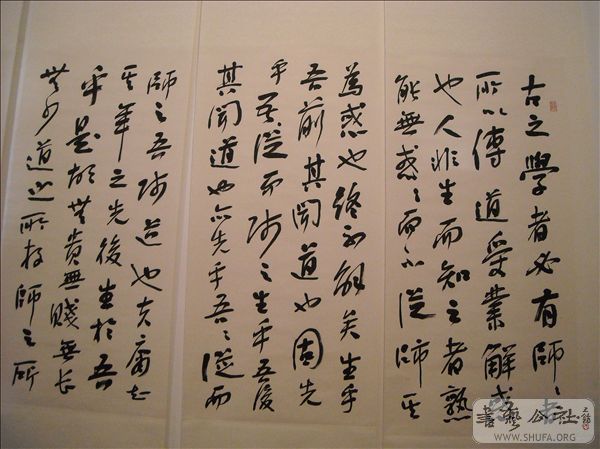 古之學者必有師〻者
所以傳道受業解惑
也人非生而知之者熟
能無惑〻而不從師其
為惑也終不解矣生乎
吾前其聞道也固先
乎吾從而師之生乎吾後
其聞道也亦先乎吾〻從而
師之吾師道也夫庸知
其年之先後生於吾
乎是故無貴無賤無長
無少道之所存師之所
書藝公社
WWW.SHUFA.ORG